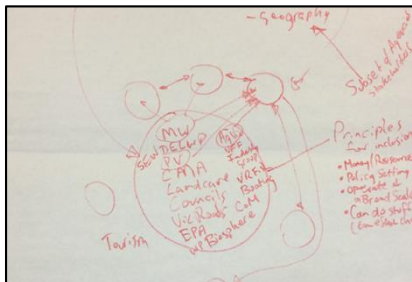 - Geography
Subset of Agencies
Stakeholders
MW
SEW
DELWP
PV
CMA
Landcare
Councils
Vic Roads
EPA
WP Biosphere
Industry
VRFish
Boating
CoM
Tourism
Principles
for inclusion
• Money/Resource
• Policy Setting
• Operate at
a Broad Scale
• Can do stuff